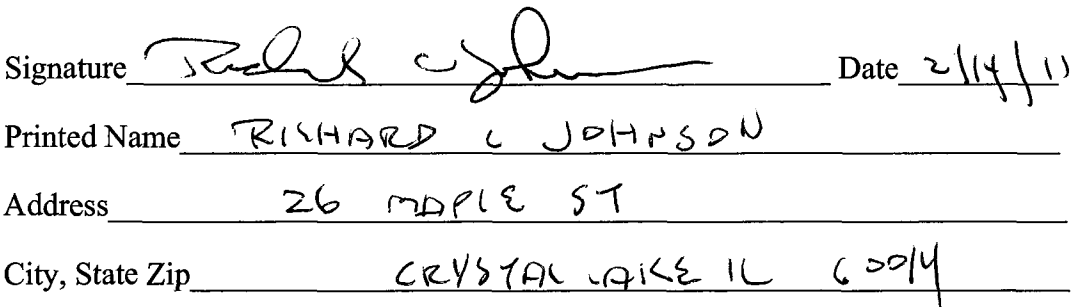 Signature Richard C Johnson Date 2/14/11
Printed Name RICHARD C JOHNSON
Address 26 MAPLE ST
City, State Zip CRYSTAL LAKE IL 60014